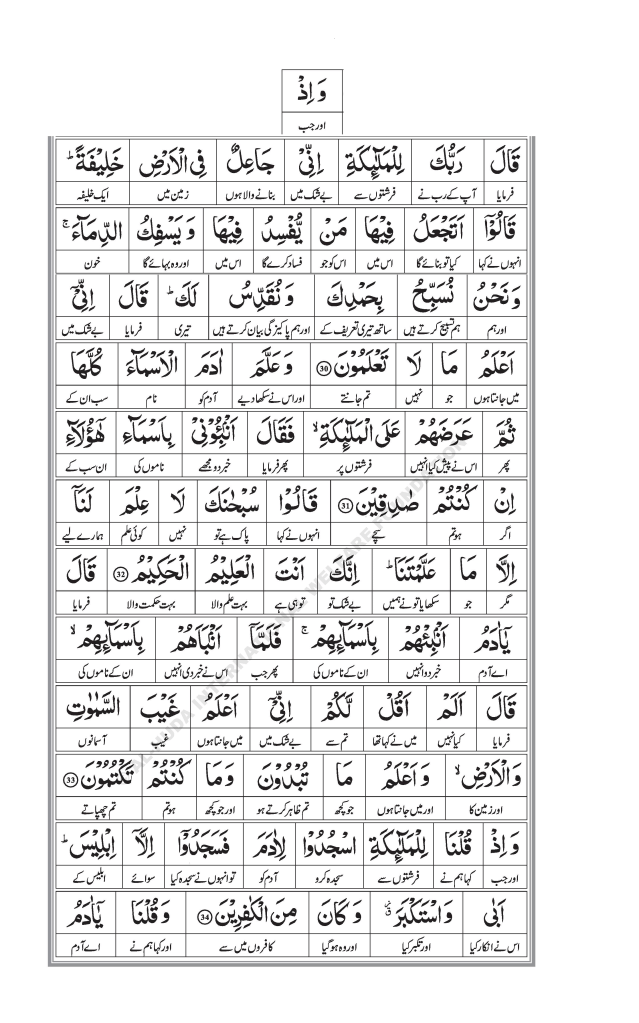 وَ اِذْ
اور جب
قَالَ رَبُّكَ لِلْمَلٰٓئِكَةِ اِنِّیْ جَاعِلٌ فِی الْاَرْضِ خَلِیْفَةًؕ
فرمایا آپ کے رب نے فرشتوں سے بے شک میں بنانے والا ہوں زمین میں ایک خلیفہ
قَالُوْۤا اَتَجْعَلُ فِیْهَا مَنْ یُّفْسِدُ فِیْهَا وَ یَسْفِكُ الدِّمَآءَۚ
انہوں نے کہا کیا تو بنائے گا اس میں اس کو جو فساد کرے گا اس میں اور وہ بہائے گا خون
وَ نَحْنُ نُسَبِّحُ بِحَمْدِكَ وَ نُقَدِّسُ لَكَؕ قَالَ اِنِّیْۤ
اور ہم ہم تسبیح کرتے ہیں ساتھ تیری تعریف کے اور ہم پاکیزگی بیان کرتے ہیں تیری فرمایا بے شک میں
اَعْلَمُ مَا لَا تَعْلَمُوْنَ 30 وَ عَلَّمَ اٰدَمَ الْاَسْمَآءَ كُلَّهَا
میں جانتا ہوں جو نہیں تم جانتے اور اس نے سکھا دیے آدم کو نام سب ان کے
ثُمَّ عَرَضَهُمْ عَلَی الْمَلٰٓئِكَةِۙ فَقَالَ اَنْۢبِـُٔوْنِیْ بِاَسْمَآءِ هٰۤؤُلَآءِ
پھر اس نے پیش کیا انہیں فرشتوں پر پھر فرمایا خبر دو مجھے ناموں کی ان سب کے
اِنْ كُنْتُمْ صٰدِقِیْنَ 31 قَالُوْا سُبْحٰنَكَ لَا عِلْمَ لَنَاۤ
اگر ہو تم سچے انہوں نے کہا پاک ہے تو نہیں کوئی علم ہمارے لیے
اِلَّا مَا عَلَّمْتَنَاؕ اِنَّكَ اَنْتَ الْعَلِیْمُ الْحَكِیْمُ 32 قَالَ
مگر جو سکھایا تو نے ہمیں بے شک تو تو ہی ہے بہت علم والا بہت حکمت والا فرمایا
یٰۤاٰدَمُ اَنْۢبِئْهُمْ بِاَسْمَآئِهِمْۚ فَلَمَّاۤ اَنْۢبَاَهُمْ بِاَسْمَآئِهِمْۙ
اے آدم خبر دو انہیں ان کے ناموں کی پھر جب اس نے خبر دی انہیں ان کے ناموں کی
قَالَ اَلَمْ اَقُلْ لَّكُمْ اِنِّیْۤ اَعْلَمُ غَیْبَ السَّمٰوٰتِ
فرمایا کیا نہیں میں نے کہا تھا تم سے بے شک میں میں جانتا ہوں غیب آسمانوں
وَ الْاَرْضِۙ وَ اَعْلَمُ مَا تُبْدُوْنَ وَ مَا كُنْتُمْ تَكْتُمُوْنَ 33
اور زمین کا اور میں جانتا ہوں جو کچھ تم ظاہر کرتے ہو اور جو کچھ ہو تم تم چھپاتے
وَ اِذْ قُلْنَا لِلْمَلٰٓئِكَةِ اسْجُدُوْا لِاٰدَمَ فَسَجَدُوْۤا اِلَّاۤ اِبْلِیْسَؕ
اور جب کہا ہم نے فرشتوں سے سجدہ کرو آدم کو تو انہوں نے سجدہ کیا سوائے ابلیس کے
اَبٰی وَ اسْتَكْبَرَ وَ كَانَ مِنَ الْكٰفِرِیْنَ 34 وَ قُلْنَا یٰۤاٰدَمُ
اس نے انکار کیا اور تکبر کیا اور وہ ہو گیا کافروں میں سے اور کہا ہم نے اے آدم